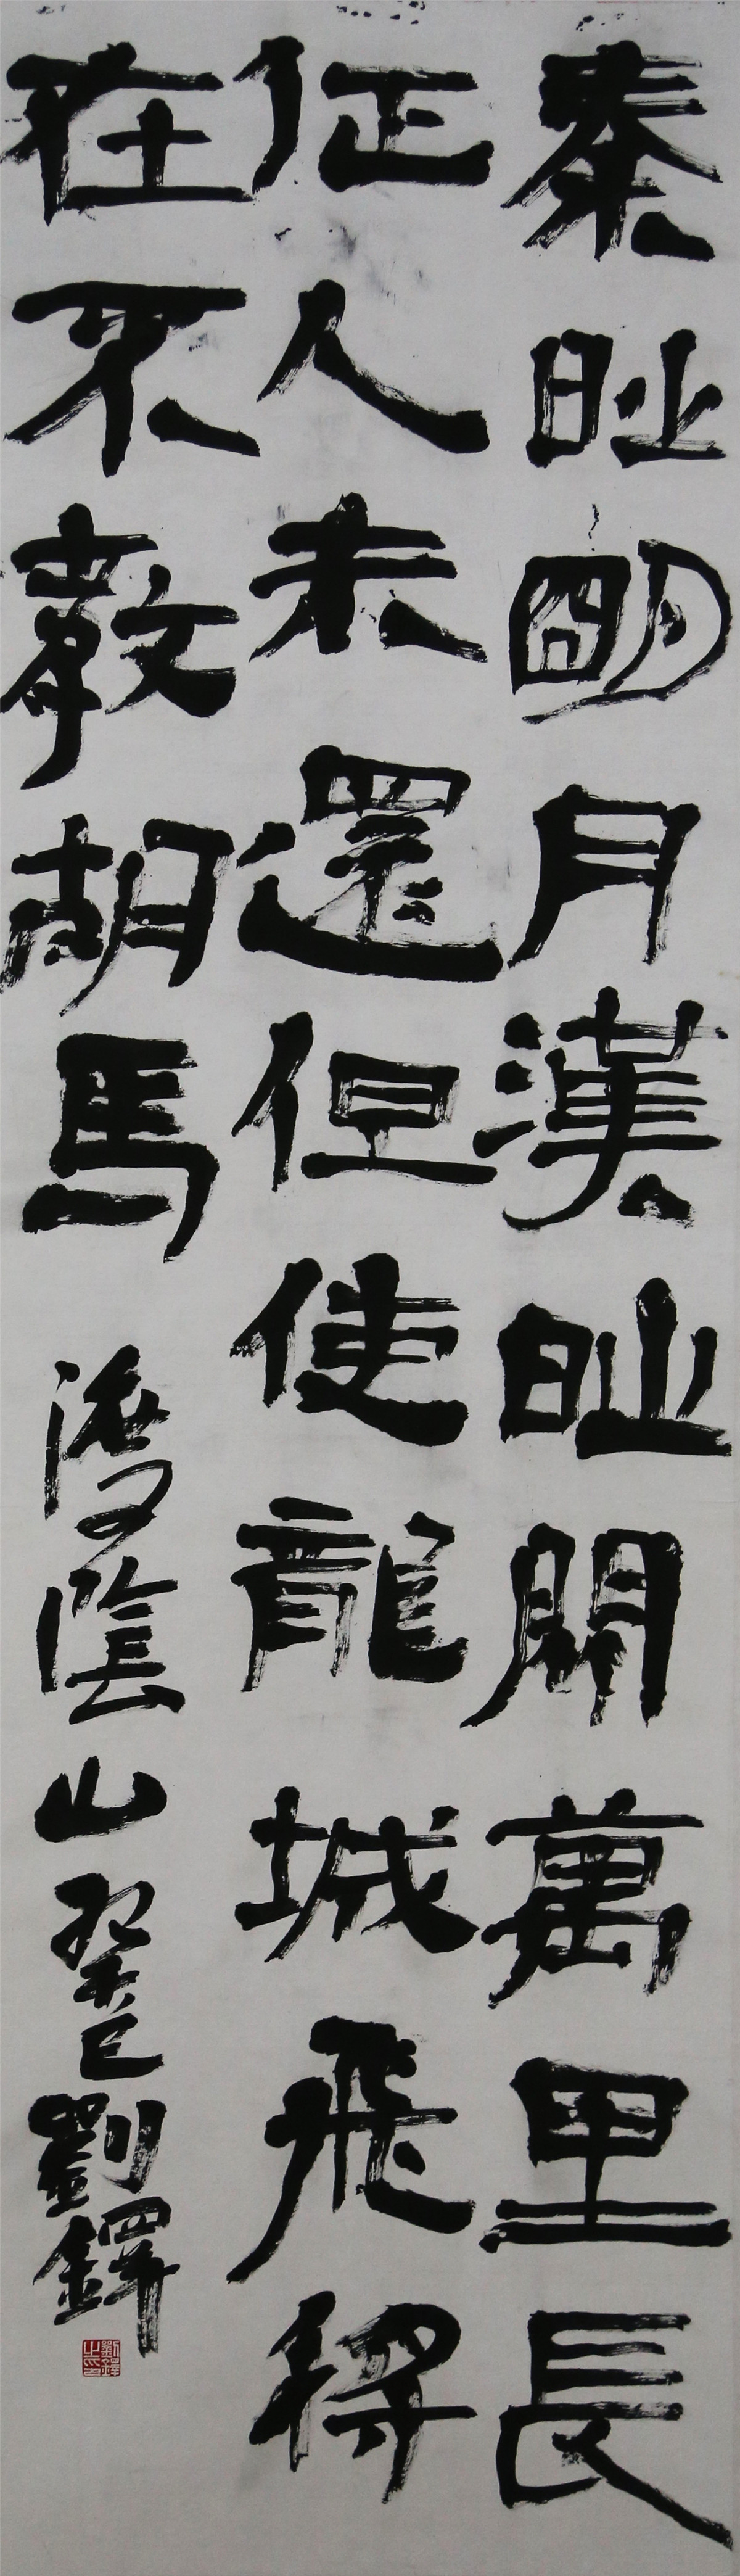 秦時朙月漢時關萬里長
征人未還但使龍城飛將
在不敎胡馬渡陰山癸巳劉鐸
劉鐸之印